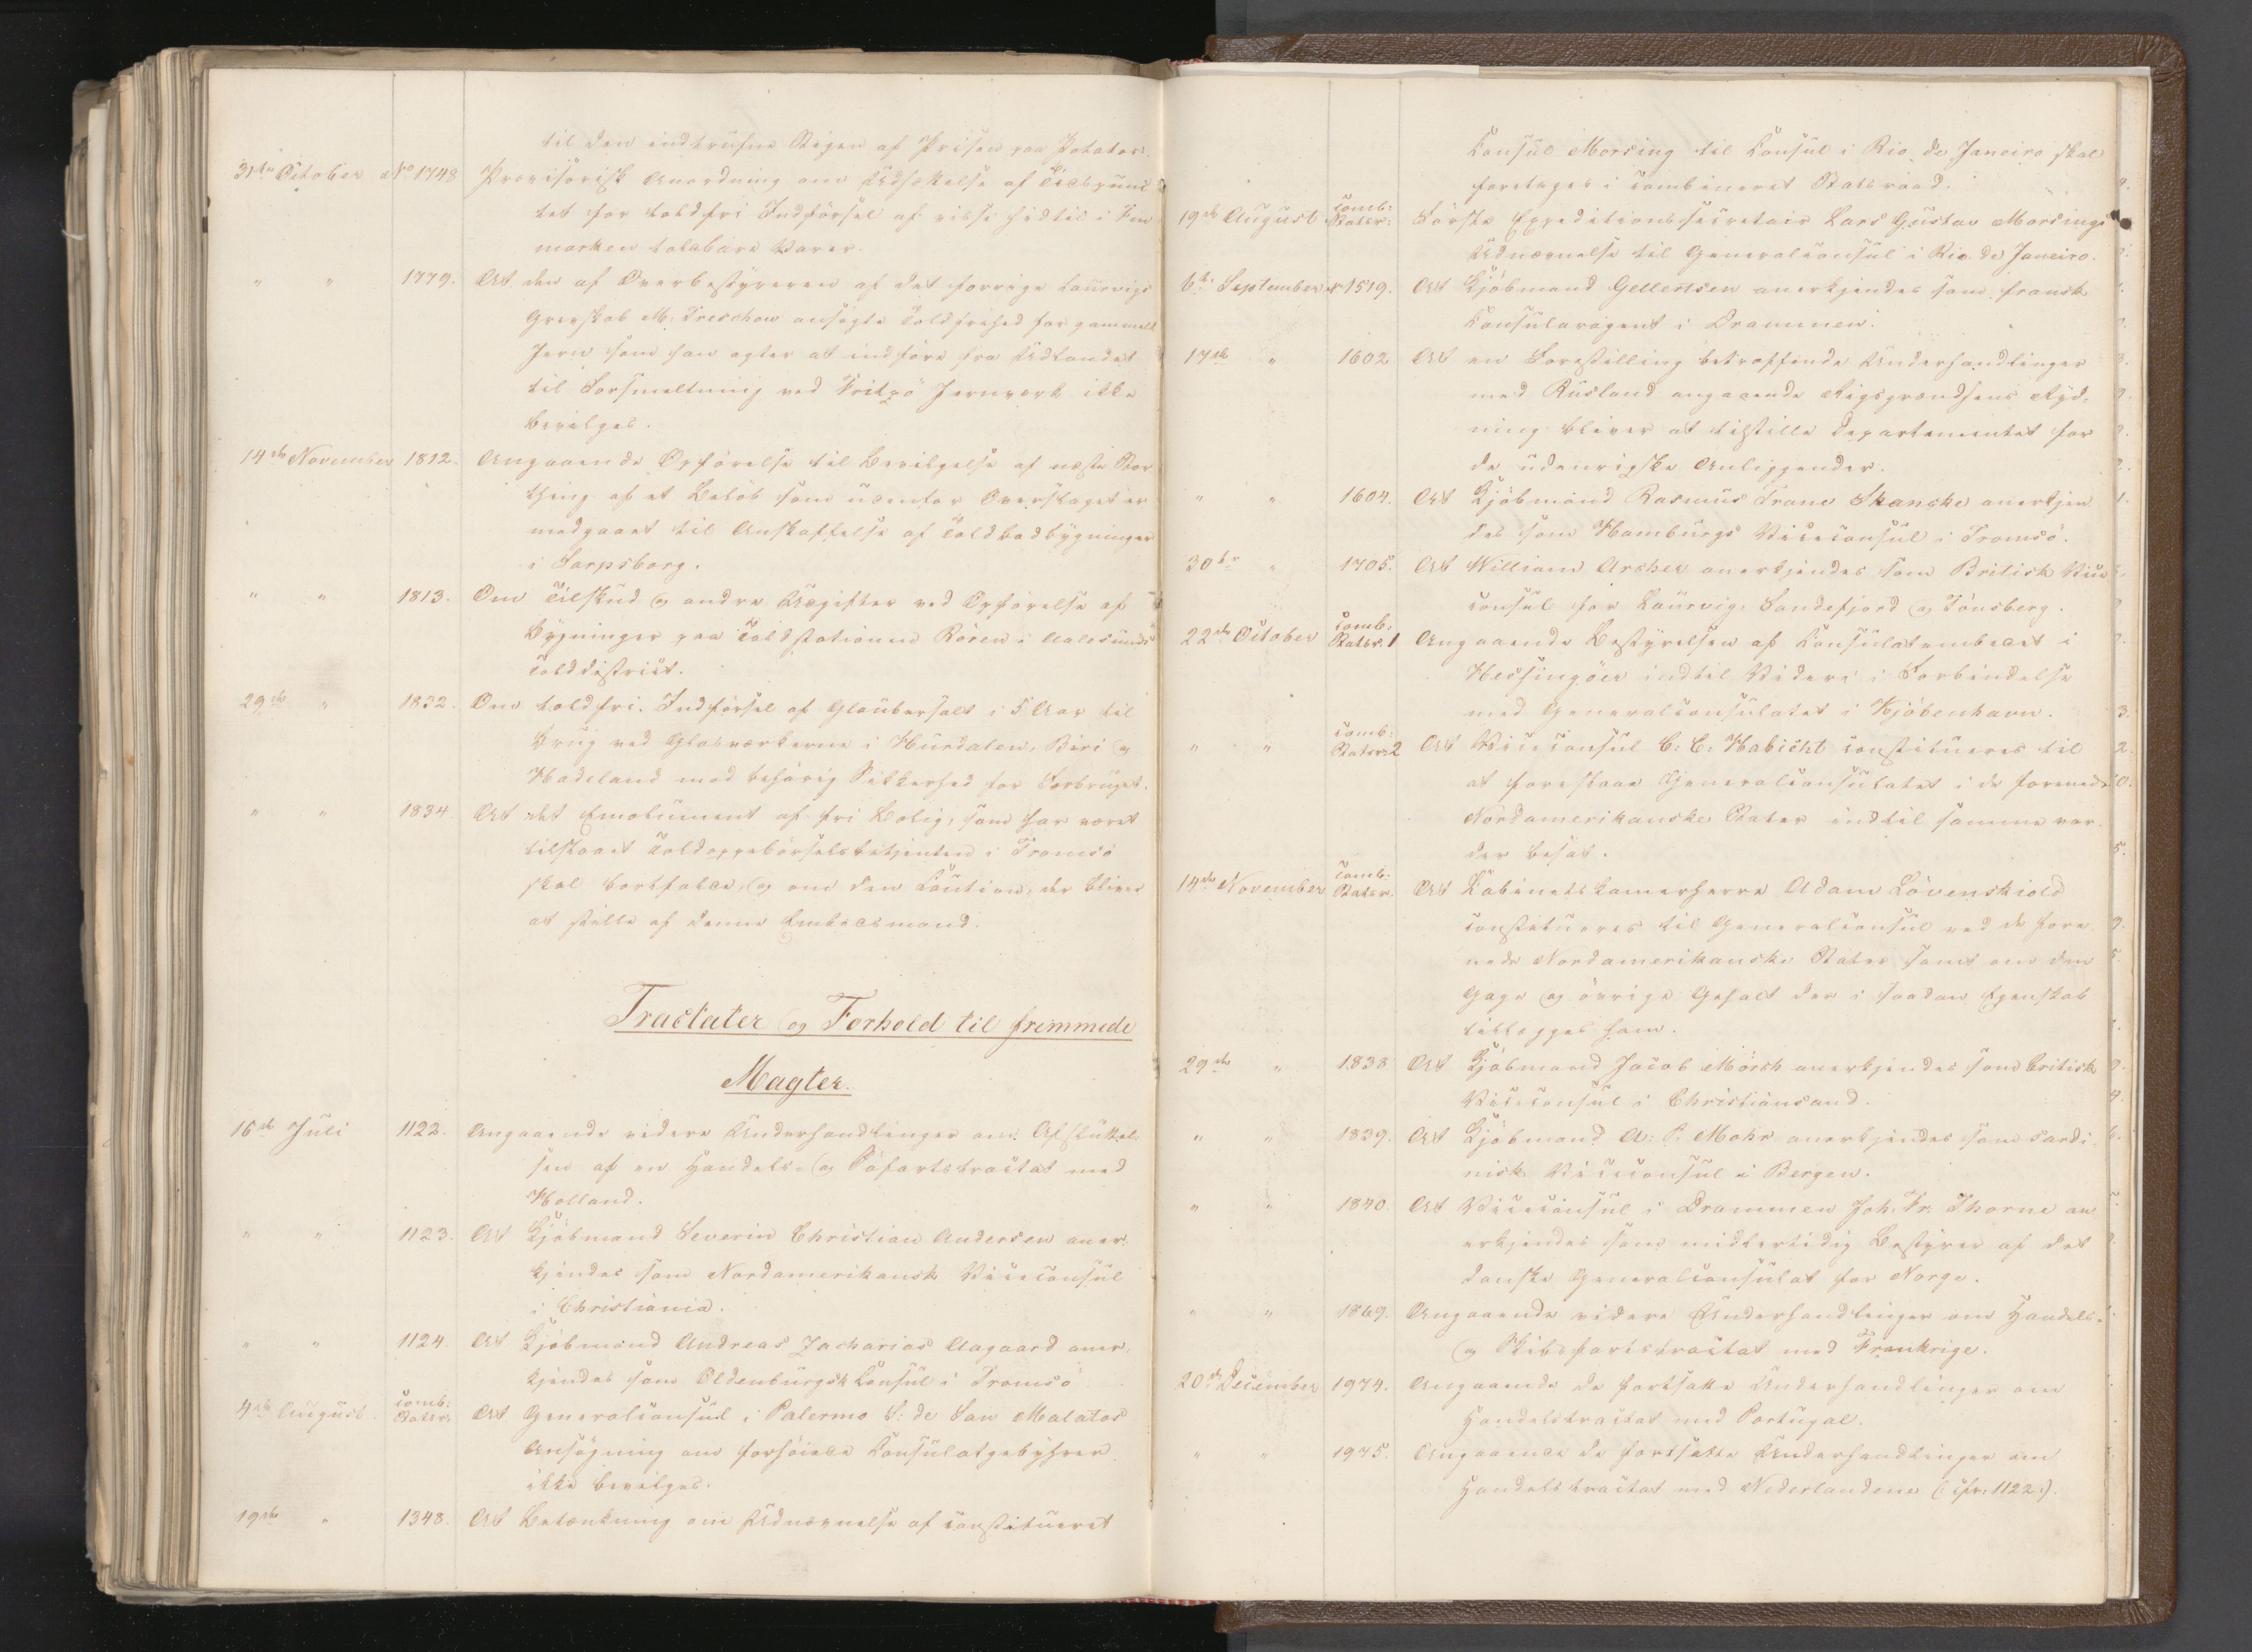 til den indtrufne Stigen af Prisen paa Potatos.
31te October No 1748 Provisorisk Anordning om Udsættelse af Tidspunc
tet for toldfri Indførsel af visse hidtil i Fin
marken toldbare Varer.
" " 1779. At den af Overbestyreren af det forrige Laurvigs
Grevskab M: Treschow ansøgte Toldfrihed for gammelt
Jern som han agter at indføre fra Udlandet
til Forsmeltning ved Fritzö Jernverk ikke
bevilges.
14de November 1812. Angaaende Opførelse til Bevilgelse af næste Stor
thing af et Beløb som udenfor Overslaget er
medgaaet til Anskaffelse af Toldbodbygninger
i Sarpsborg.
" " 1813. Om Tilskud og andre Udgifter ved Opførelse af
Bygninger paa Toldstationen Rören i Aalesunds
Tolddistrict.
29de " 1832. Om toldfri Indførsel af Glaubersalt i 5 Aar til
Brug ved Glasværkerne i Hurdalen, Biri og
Hadeland mod behørig Sikkerhed for Forbruget.
" " 1834. At det Emolument af fri Bolig, som har været
tilstaaet Toldoppebørselsbetjenten i Tromsö
skal bortfalde, og om den Caution, der bliver
at stille af denne Embedsmand.
Tractater og Forhold til fremmede
Magter.
16de Juli 1122. Angaaende videre Underhandlinger om Afsluttel-
sen af en Handels- og Søfartstractat med
Holland.
" " 1123. At Kjøbmand Severin Christian Andersen aner-
kjendes som Nordamerikansk Viceconsul
i Christiania.
" " 1124. At Kjøbmand Andreas Zacharias Aagaard aner-
kjendes som Oldenburgsk Consul i Tromsö
4de August comb: Statsr: At Generalconsul i Palermo S: de San Malatos
Ansøgning om forhøiede Consulatgebyhrer
ikke bevilges.
19de " 1348. At Betænkning om Udnævnelse af constitueret
Consul Morsing til Consul i Rio de Janeiro skal
foretages i combineret Statsraad.
19de August comb: Statsr: Første Expeditionssecretair Lars Gustav Morsings
Udnævnelse til Generalconsul i Rio de Janeiro.
6te September No 1519. At Kjøbmand Gellertsen anerkjendes som fransk
Consularagent i Drammen.
17de " 1602 At en Forestilling betræffende Underhandlinger
med Rusland angaaende Rigsgrændsens Ryd-
ning bliver at tilstille Departementet for
de udenrigske Anliggender.
" " 1604. At Kjøbmand Rasmus Trane Skancke anerkjen
des som Hamburgs Viceconsul i Tromsö.
30te " 1705. At William Archer anerkjendes som Britisk Vice
consul for Laurvig, Sandefjord og Tönsberg.
22de October comb: Statsr. 1 Angaaende Bestyrelsen af Consulatembedet i
Helsingöer indtil Videre i Forbindelse
med Generalconsulatet i Kjöbenhavn.
" " comb: Statsr: 2 At Viceconsul C: E: Habicht constitueres til
at forestaae Generalconsulatet i de forenede
Nordamerikanske Stater indtil samme vor-
der besat.
14de November comb: Statsr. At Kabinetskamerherre Adam Lövenskiold
constitueres til Generalconsul ved de fore
nede Nordamerikanske Stater samt om den
Gage og øvrige Gehalt der i saadan Egenskab
tillægges ham.
29de " 1838 At Kjøbmand Jacob Mörch anerkjendes som britisk
Viceconsul i Christiansand.
" " 1839. At Kjøbmand A: S: Mohr anerkjendes som sardi-
nisk Viceconsul i Bergen.
" " 1840. At Viceconsul i Drammen Joh. Fr. Thorne an
erkjendes som midlertidig Bestyrer af det
danske Generalconsulat for Norge.
" " 1869. Angaaende videre Underhandlinger om Handels-
og Skibsfartstractat med Frankrige.
20de December 1974. Angaaende de fortsatte Underhandlinger om
Handelstractat med Portugal.
" " 1975. Angaaende de fortsatte Underhandlinger om
Handelstractat med Nederlandene (: cfr: 1122 :).